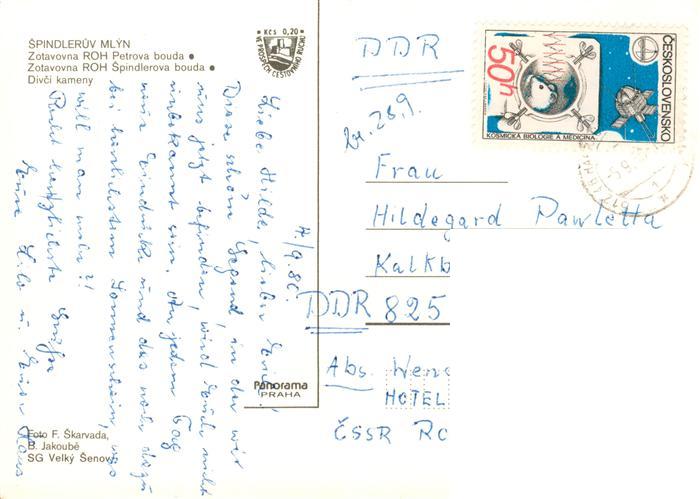 ŠPINDLERŮV MLÝN
Zotavovna ROH Petrova bouda ●
Zotavovna ROH Špindlerova bouda ●
Dívčí kameny
Kčs 0,20
VE PROSPĚCH CESTOVNÍHO RUCHU
4./9.86.
Liebe Hilde, lieber Ernst!
Diese schöne Gegend, in der wir
uns jetzt befinden, wird Euch nicht
unbekannt sein. An jedem Tag
neue Eindrücke und das noch dazu
bei herrlichstem Sonnenschein, was
will man mehr?!
Recht herzlichste Grüße
Eure
Panorama
PRAHA
Foto F. Škarvada,
B. Jakoubě
SG Velký Šenov
ČESKOSLOVENSKO
50h
KOSMICKÁ BIOLOGIE A MEDICÍNA
DDR
28.9.
Frau
Hildegard Pawletta
Kalkb
DDR 825
Abs. Wene
HOTEL
ČSSR Ro